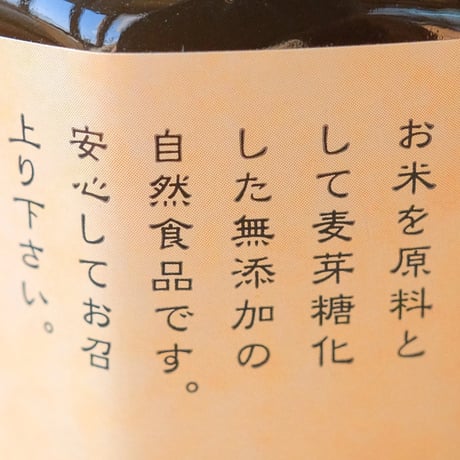 お米を原料と
して麦芽糖化
した無添加の
自然食品です。
安心してお召
上り下さい。